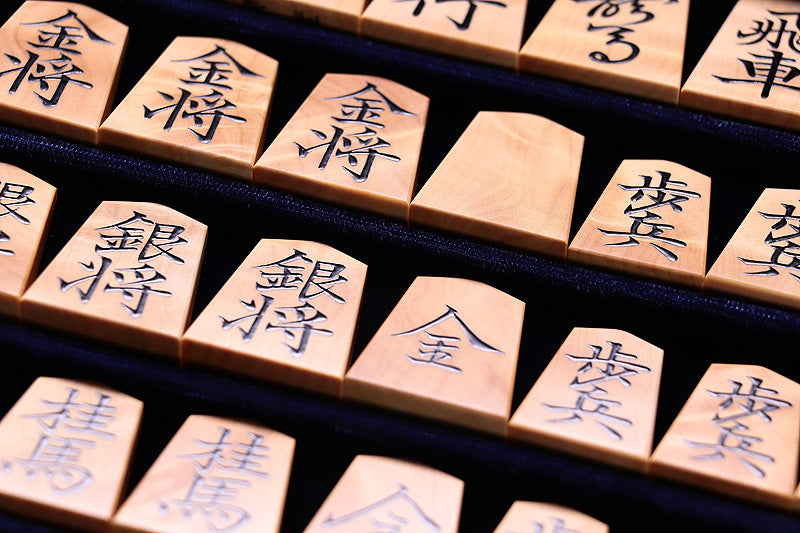 行
飛車
金将
金将
金将
歩兵
歩兵
銀将
銀将
全
歩兵
歩兵
桂馬
桂馬